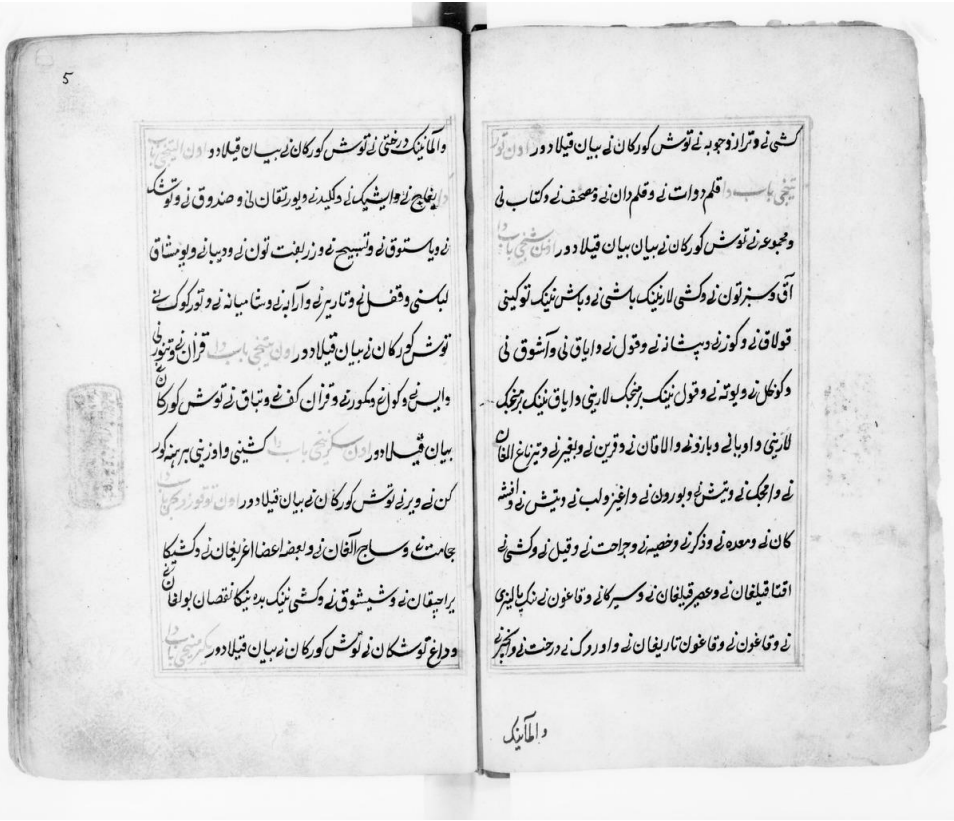 کشی نی و ترازو جوبه نی توش کورکان نی بیان قیلادور اون تور
تینجی باب دا قلم دوات نی و قلم دان نی و مصحف نی و کتاب نی
و مجموعه نی توش کورکان نی بیان بیان قیلادور اون بشنجی باب دا
آق و سبز تون نی و کشی لارنینک باشی نی و باش نینک توکینی
قولاق نی و کوز نی و پیشانه نی و قول نی و ایاق نی و آشوق نی
و کونکل نی و یوته نی و قول نینک برمنجک لارینی و ایاق نینک برمنجک
لارینی و اوپانی و والاقان نی و قرین نی و بغیر نی و تیرناغ الغان
نی و امجک نی و تیش نی و بورون نی و اغیز و لب نی و تیش نی
کان نی و معده نی و ذکر نی و خصیه نی و جراحت نی و قیل نی و کشی نی
اقتا قیلغان نی و عصیر قیلغان نی و سیرکانی و قاغون نی
نی و قاغون نی و قاغون تاریغان نی و اوروک نی درخت نی و انجیر نی
و المانینک
5
و المانینک درختی نی توش کورکان نی بیان قیلادور اون التینجی باب
دا یغاج نی و ایشیک نی و کلید نی و یورتقان نی و صندوق نی و توشک
نی و یاستوق نی و تسبیح نی و زربفت تون نی و دیبا نی و یومشاق
لباسنی و قفل نی و تاریر نی و آرابه نی و شامیانه نی و تورکوک نی
توش کورکان نی بیان قیلادور اون یتینجی باب دا قزان نی و تنور نی
و ایس نی و کواغ و کور نی و قزان کفه نی و تباق نی توش کورکان
بیان قیلادور اون سکیزنجی باب دا کشینی و اوزینی برهنه کور
کن نی و یر نی توش کورکان نی بیان قیلادور اون توقوزونجی باب دا
حجامت نی و ساج آلغان نی و بعضه اعضا اغریغان نی و کشیکا
یراجیقان نی و شیشوق نی و کشی نینک بدنینکا نقصان بولغان نی
و داغ توشکان نی توش کورکان نی بیان قیلادور یکرمنجی باب دا